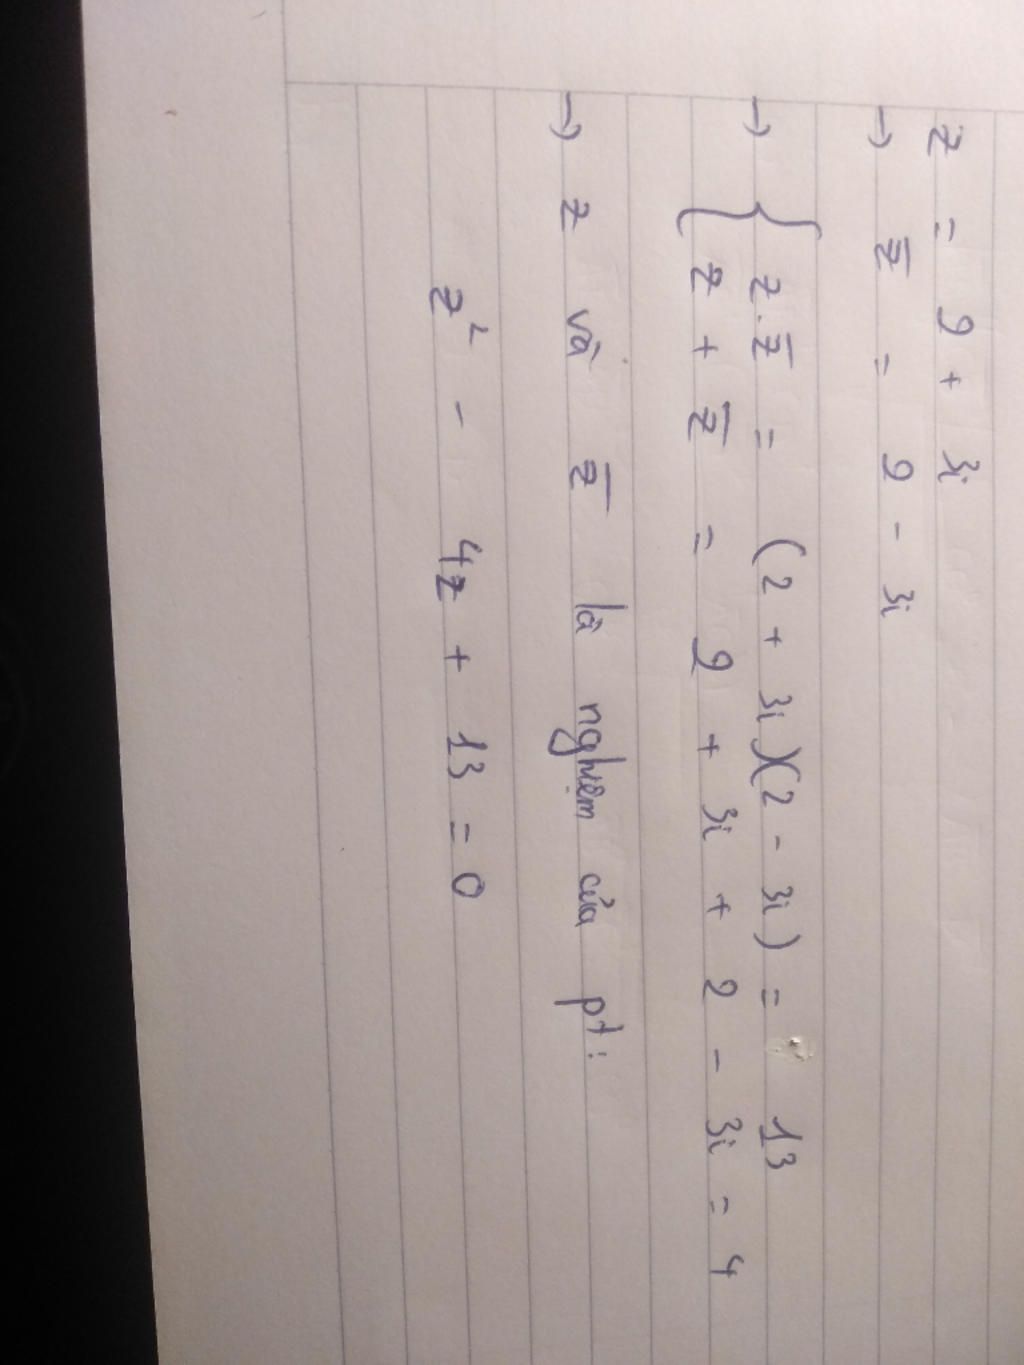 z = 2 + 3i
→ z̅ = 2 - 3i
→ { z.z̅ = (2 + 3i)(2 - 3i) = 13
z + z̅ = 2 + 3i + 2 - 3i = 4
→ z và z̅ là nghiệm của pt:
z² - 4z + 13 = 0